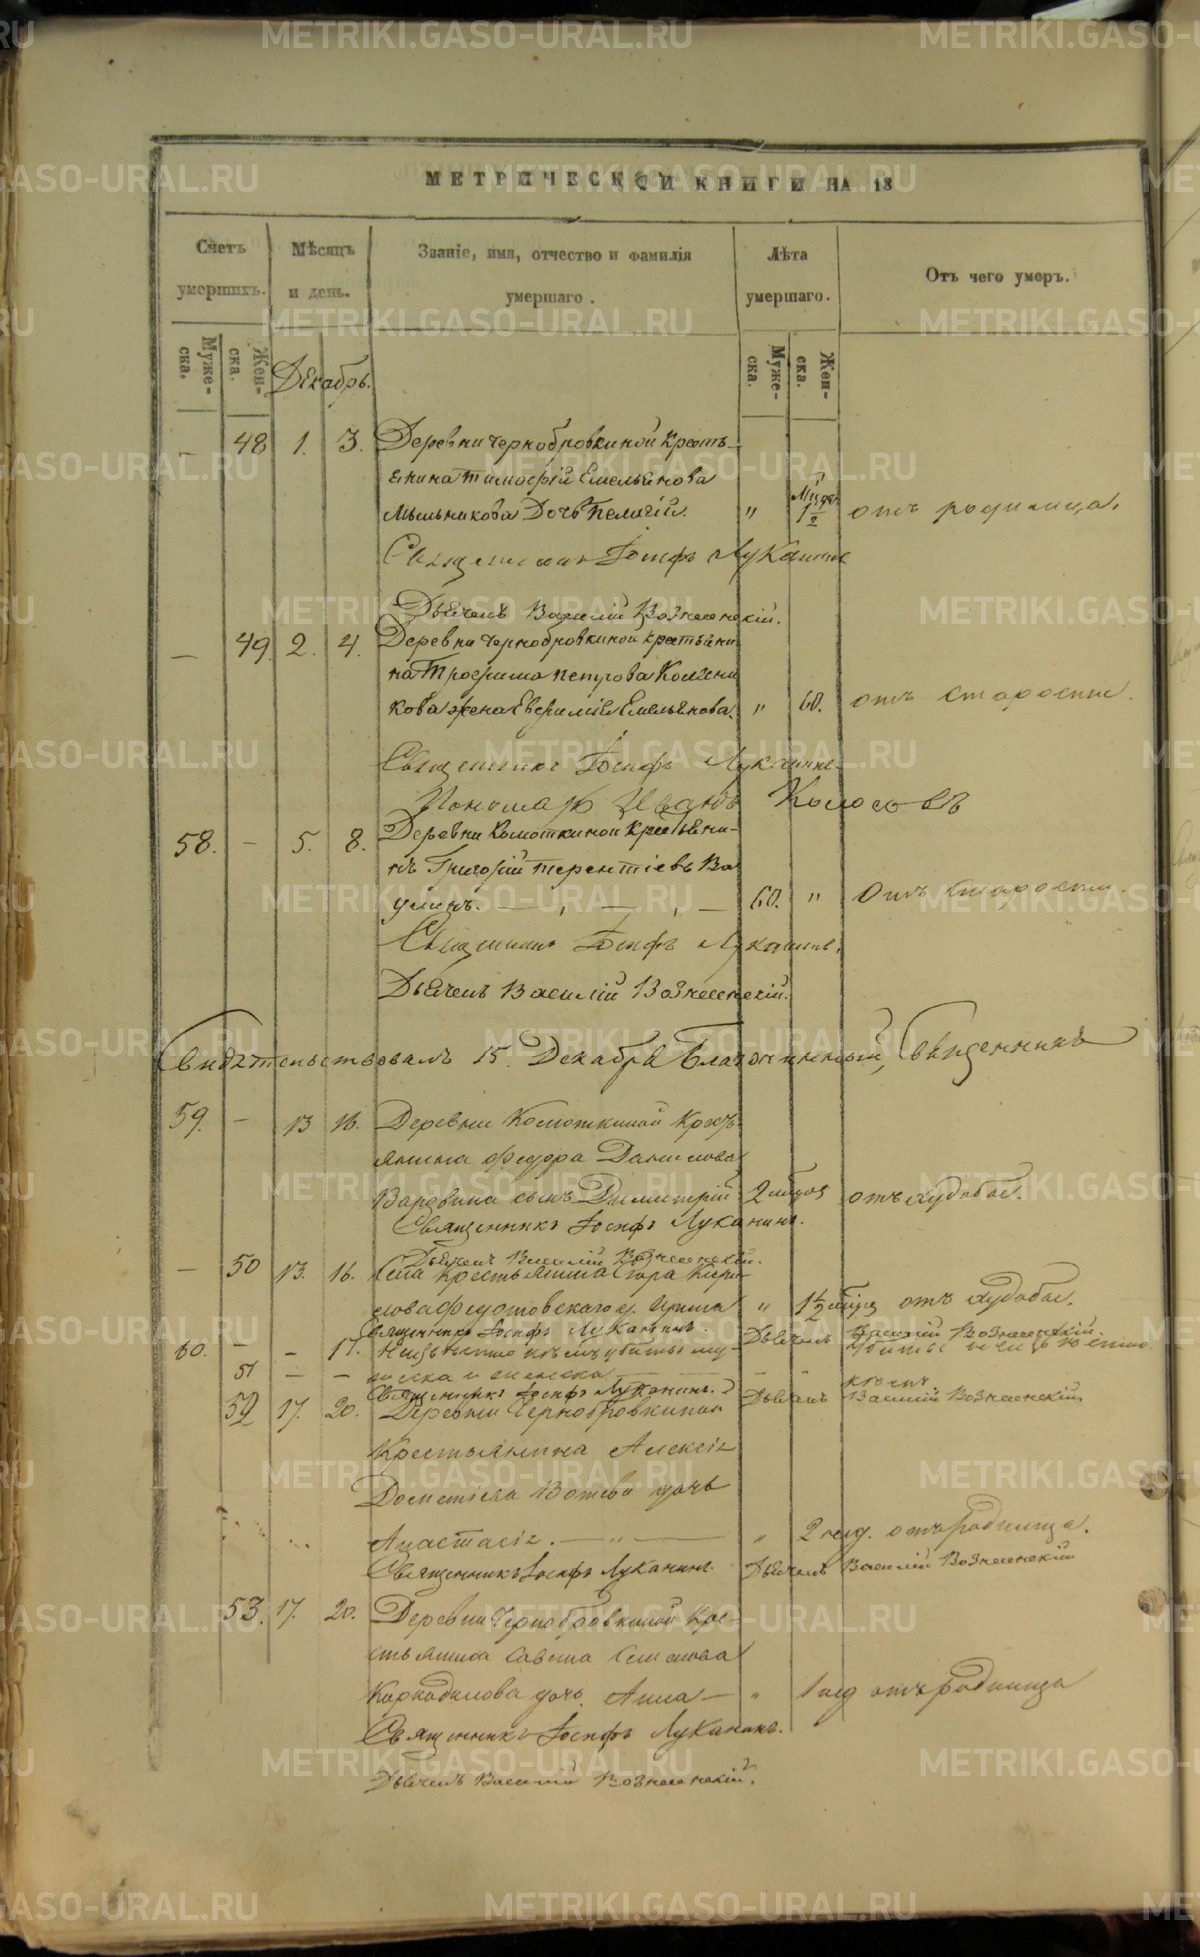 МЕТРИЧЕСКОЙ КНИГИ НА 18
Счетъ умершихъ.
Мѣсяцъ и день.
Званіе, имя, отчество и фамилія умершаго.
Лѣта умершаго.
Отъ чего умеръ.
Муже-ска.
Жен-ска.
Муже-ска.
Жен-ска.
Декабрь.
— 48 1. 3. Деревни Чернобровкиной Кресть-
янина Тимофѣй Емельянова
Мыльникова Дочь Пелагій. " 1 1/2 отъ родимца.
Священникъ Іосифъ Луканинъ
Дьячекъ Василій Вознесенскій.
— 49. 2. 4. Деревни Чернобровкиной крестьяни
на Трофима Петрова
кова жена Евфимія Емельянова. " 60. отъ старости.
Священникъ Іосифъ Луканинъ
Пономарь Иванъ Колосовъ
58. — 5. 8. Деревни Комоткиной Крестьяни-
нъ Григорій Терентіевъ Ва
улинъ. 60. " Отъ старости.
Священникъ Іосифъ Луканинъ.
Дьячекъ Василій Вознесенскій.
Свидѣтельствовалъ 15. Декабря Благочинный, Священникъ
59. — 13 16. Деревни Комоткиной Крест
янина Федора Данилова
сынъ Димитрій 2 отъ худобы.
Священникъ Іосифъ Луканинъ.
Дьячекъ Василій Вознесенскій.
— 50 13. 16. Села Крестьянина
Федотовскаго " 1 1/2 отъ худобы.
Священникъ Іосифъ Луканинъ. Дьячекъ Василій Вознесенскій.
60. — — 17. Неизвѣстно кѣмъ убитые му-
51 — —
Священникъ Іосифъ Луканинъ. Дьячекъ Василій Вознесенскій.
52 17. 20. Деревни Чернобровкиной
Крестьянина Алексія
дочь
Анастасія. — " — " 2 нед. отъ родимца.
Священникъ Іосифъ Луканинъ. Дьячекъ Василій Вознесенскій
53. 17. 20. Деревни Чернобровкиной Кре-
стьянина Савина Семенова
Каркадинова дочь Анна — " 1 нед отъ родимца
Священникъ Іосифъ Луканинъ.
Дьячекъ Василій Вознесенскій.
METRIKI.GASO-URAL.RU